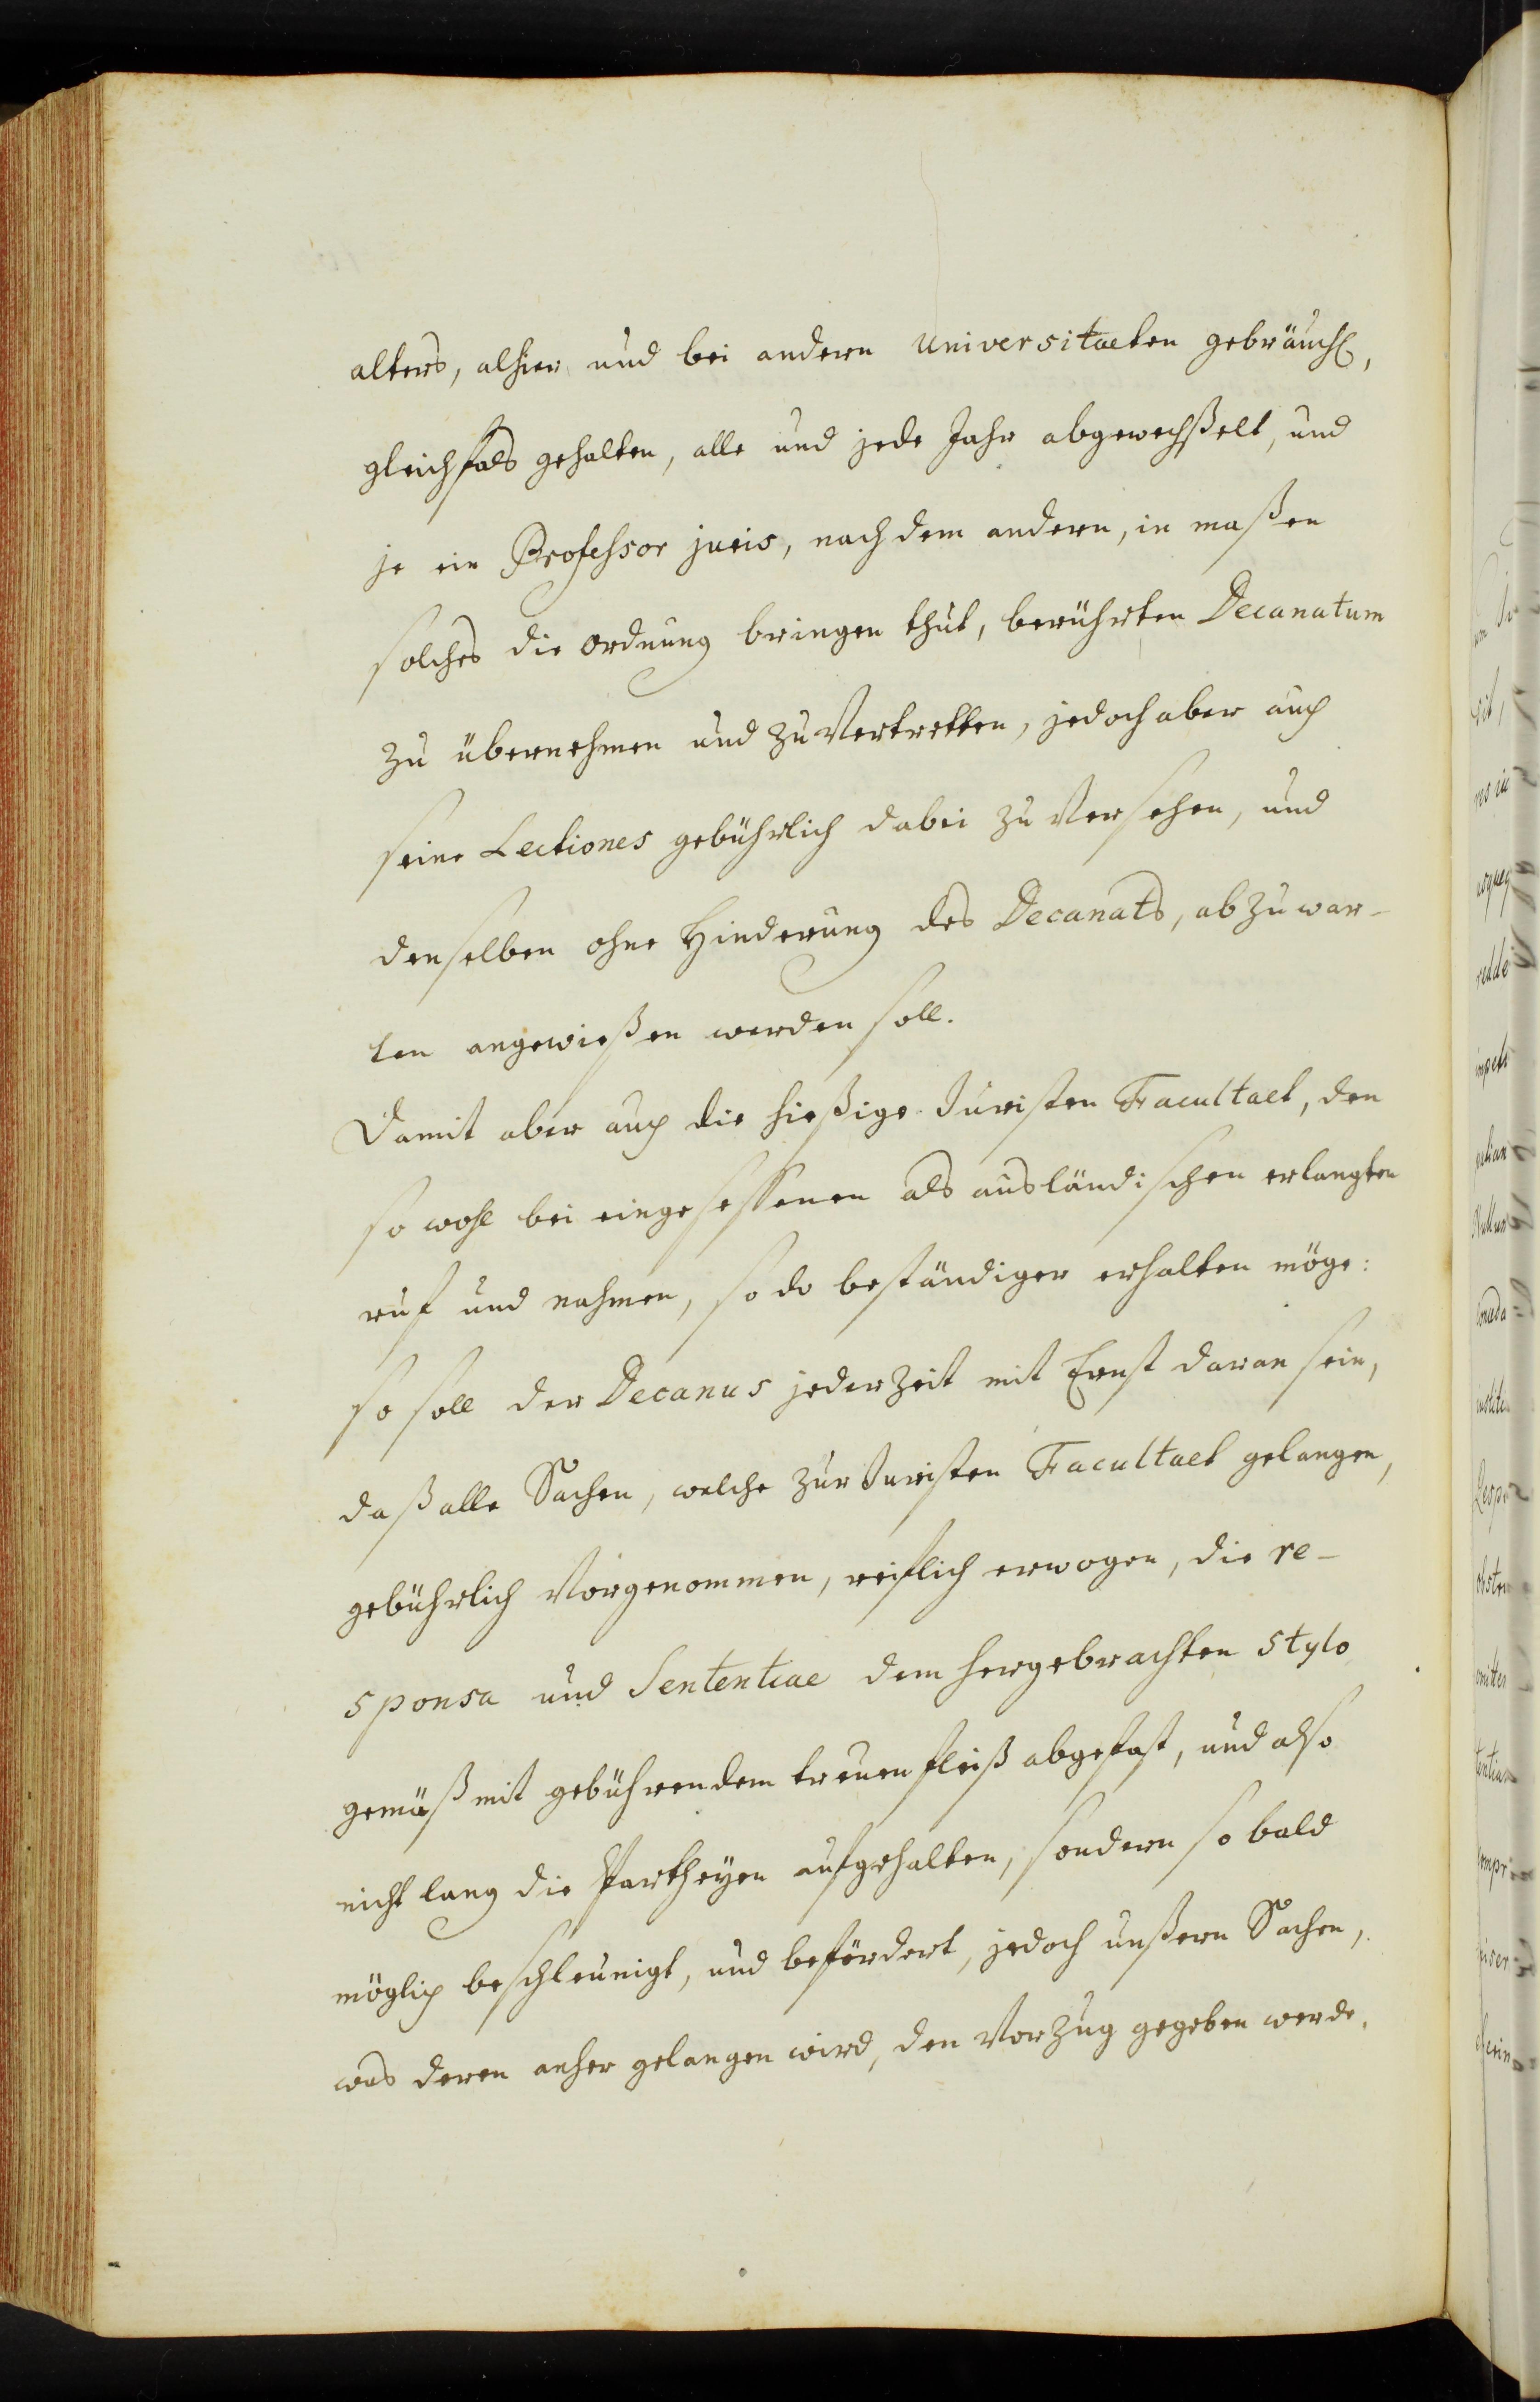 alters, alhier und bei andern Universitaeten gebräuchl.,
gleichfals gehalten, alle und jede Jahr abgewechßelt, und
je ein Professor juris, nach dem andern, in maßen
solches die ordnung bringen thut, berührten Decanatum
zu übernehmen und zu Vertretten, jedoch aber auch
seine Lectiones gebührlich dabei zu Versehen, und
denselben ohne Hinderung des Decanats, abzuwar-
ten angewießen werden soll.
Damit aber auch die hießige Juristen Facultaet, den
so wohl bei eingesessenen als ausländischen erlangten
ruf und nahmen, so do beständiger erhalten möge:
so soll der Decanus jederzeit mit Ernst daran sein,
daß alle Sachen, welche zur Juristen Facultaet gelangen,
gebührlich Vorgenommen, reiflich erwogen, die re-
sponsa und Sententiae dem hergebrachten stylo
gemäß mit gebührendem treuen fleiß abgefast, und also
nicht lang die Partheyen aufgehalten, sondern so bald
möglich beschleunigt, und befördert, jedoch unßern Sachen,
was deren anher gelangen wird, den Vorzug gegeben werde.